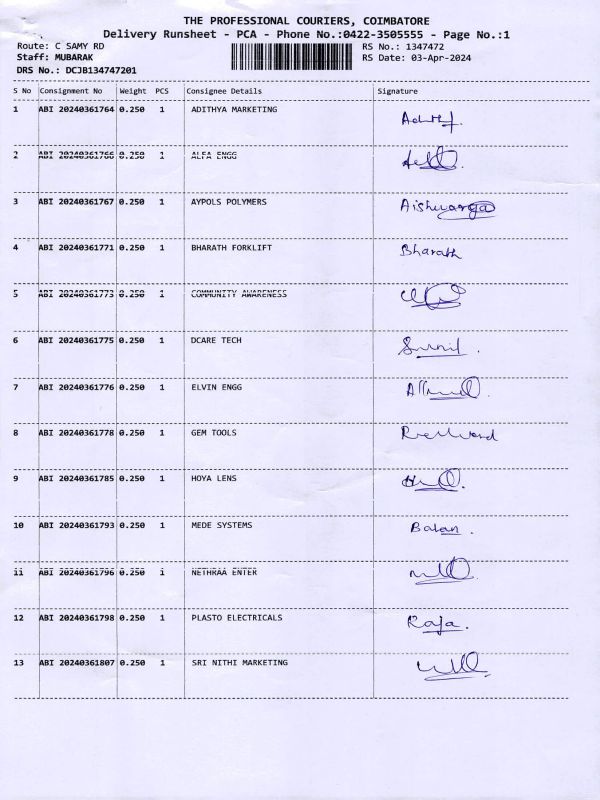 THE PROFESSIONAL COURIERS, COIMBATORE
Delivery Runsheet - PCA - Phone No.:0422-3505555 - Page No.:1
Route: C SAMY RD RS No.: 1347472
Staff: MUBARAK RS Date: 03-Apr-2024
DRS No.: DCJB134747201
S No Consignment No Weight PCS Consignee Details Signature
1 ABI 20240361764 0.250 1 ADITHYA MARKETING
2 ABI 20240361766 0.250 1 ALFA ENGG
3 ABI 20240361767 0.250 1 AYPOLS POLYMERS Aishwarya
4 ABI 20240361771 0.250 1 BHARATH FORKLIFT Bharath
5 ABI 20240361773 0.250 1 COMMUNITY AWARENESS
6 ABI 20240361775 0.250 1 DCARE TECH Sunil
7 ABI 20240361776 0.250 1 ELVIN ENGG
8 ABI 20240361778 0.250 1 GEM TOOLS
9 ABI 20240361785 0.250 1 HOYA LENS
10 ABI 20240361793 0.250 1 MEDE SYSTEMS Balan
11 ABI 20240361796 0.250 1 NETHRAA ENTER
12 ABI 20240361798 0.250 1 PLASTO ELECTRICALS Raja
13 ABI 20240361807 0.250 1 SRI NITHI MARKETING